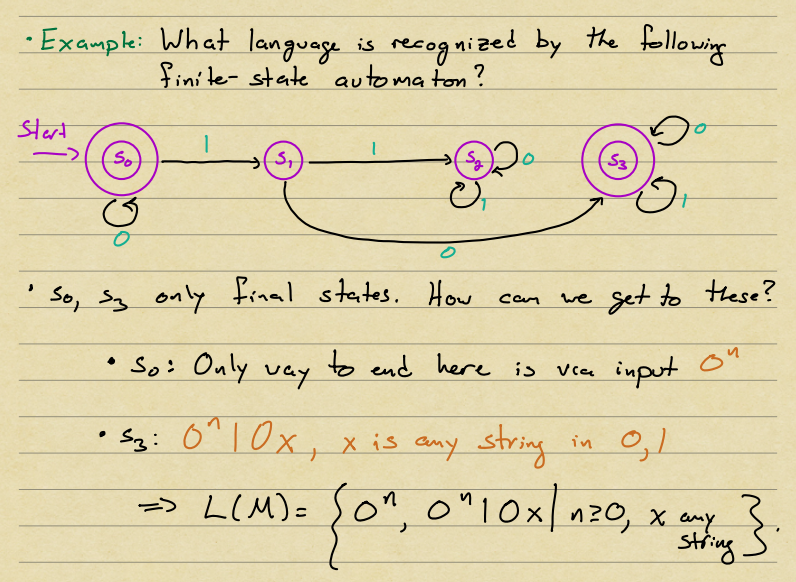 • Example: What language is recognized by the following
finite-state automaton?
Start
S₀ 1 S₁ 1 S₂ 0 S₃ 0
0 1 1
0
• S₀, S₃ only final states. How can we get to these?
• S₀: Only way to end here is via input 0ⁿ
• S₃: 0ⁿ10x, x is any string in 0,1
⇒ L(M) = {0ⁿ, 0ⁿ10x | n≥0, x any string}.